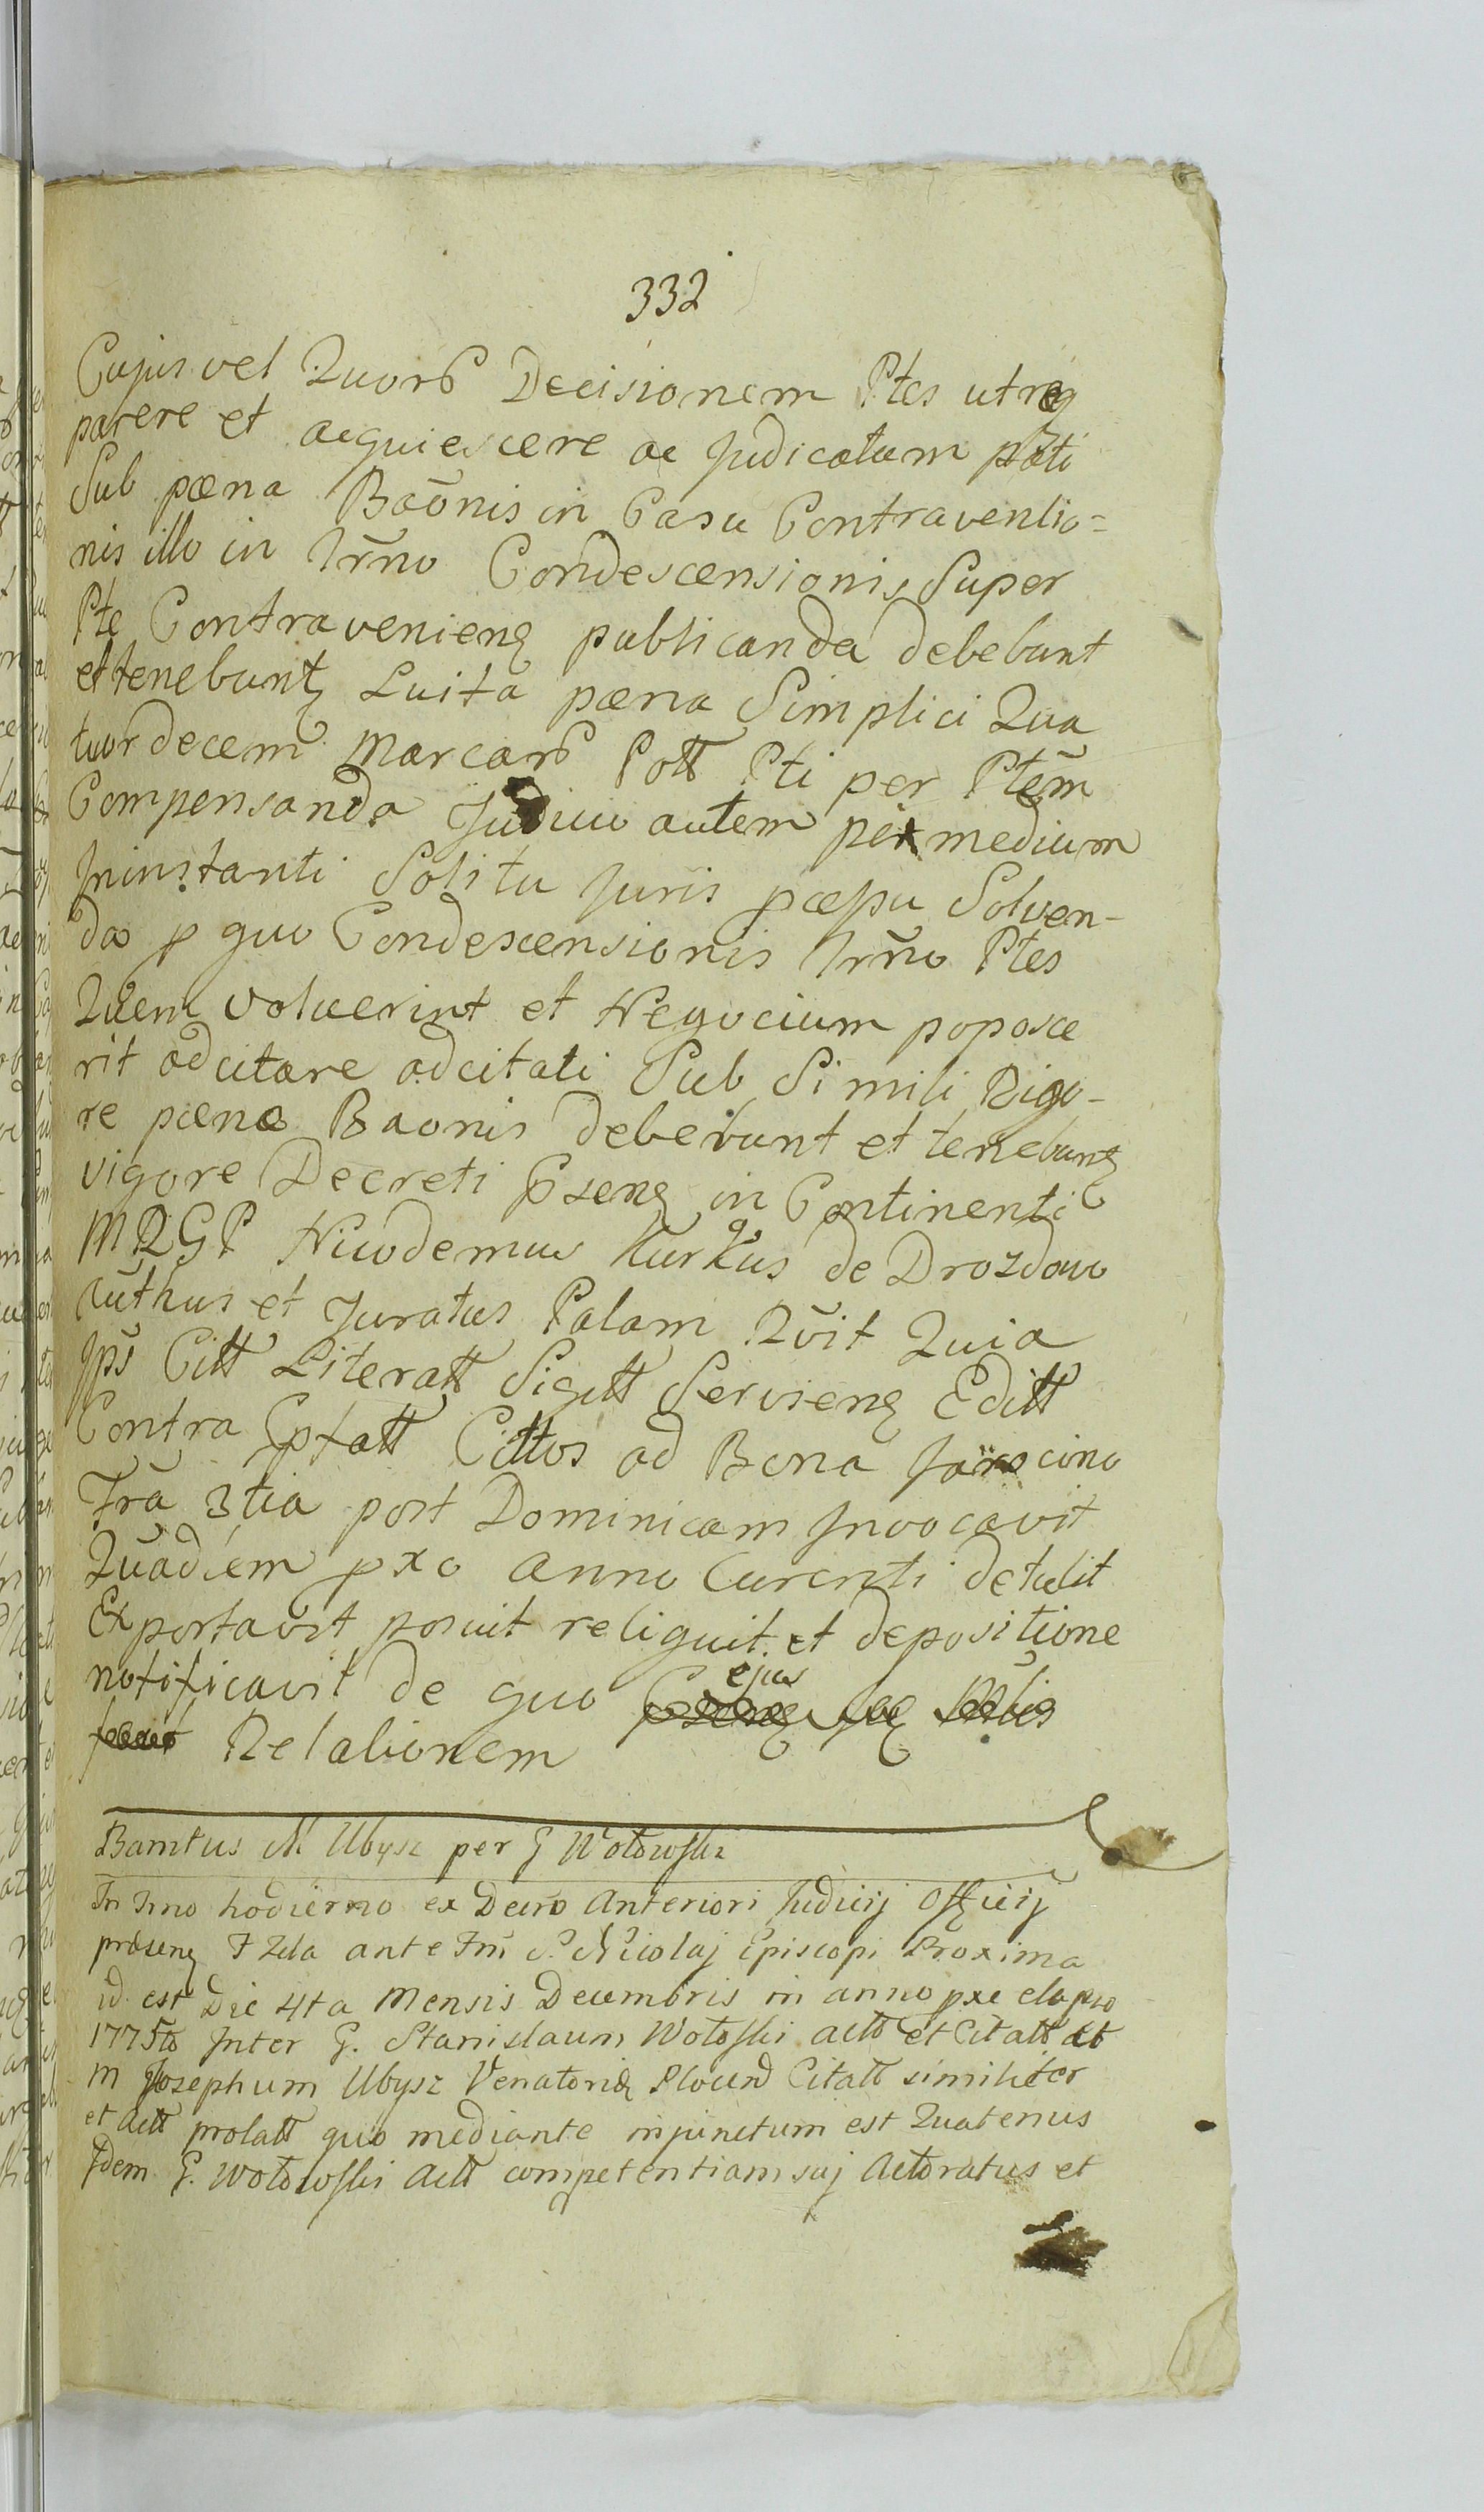 332
Cujus vel Quorū Decisionem Ptes utrēq
parere et acquiescere ac Judicatum pati
Sub pæna Baõnis in Casu Contraventio=
nis illo in Trno Condescensionis Super
Pte Contravenienę publicanda debebunt
et tenebuntę Luita pæna Simplici Qua
tuordecem Marcarū Poll Pti per Ptem
Compensanda Judicio autem per medium
Ininstanti Solitu Juris præpu Solven-
da p quo Condescensionis Trno Ptes
Quem voluerint et Negocium poposce
rit adcitare adcitati Sub Simili Rigo-
re pæna Baonis debebunt et tenebuntę
vigore Decreti psenę in Continenti
MRGP Nicodemus Kurkus de Drozdowo
Authus et Juratus Palam Rvit Quia
Ips Citt Literatt Sigill Servienę Editt
Contra Eptatt Cittos ad Bona Jarocino
Fra 3tia post Dominicam Invocavit
Quadiem pxo anno Curenti detulit
Exportavit posuit reliquit et depositione
notificavit de quo ejus
Relationem
Bamtus M Ubysz per G Wołowski
In Trno hodierno ex Decro Anteriori Judicij Officij
præsenę F 2da ante Fm S. Nicolaj Episcopi Proxima
id est Die 4ta Mensis Decembris in anno pxe elapso
1775to Inter G. Stanislaum Wołoski Actt et Citatt ab
M Josephum Ubysz Venatoridę Plocen Citatt similiter
et Actt prolatt quo mediante injunctum est Quatenus
Idem G. Wołowski Actt competentiam suj Actoratus et